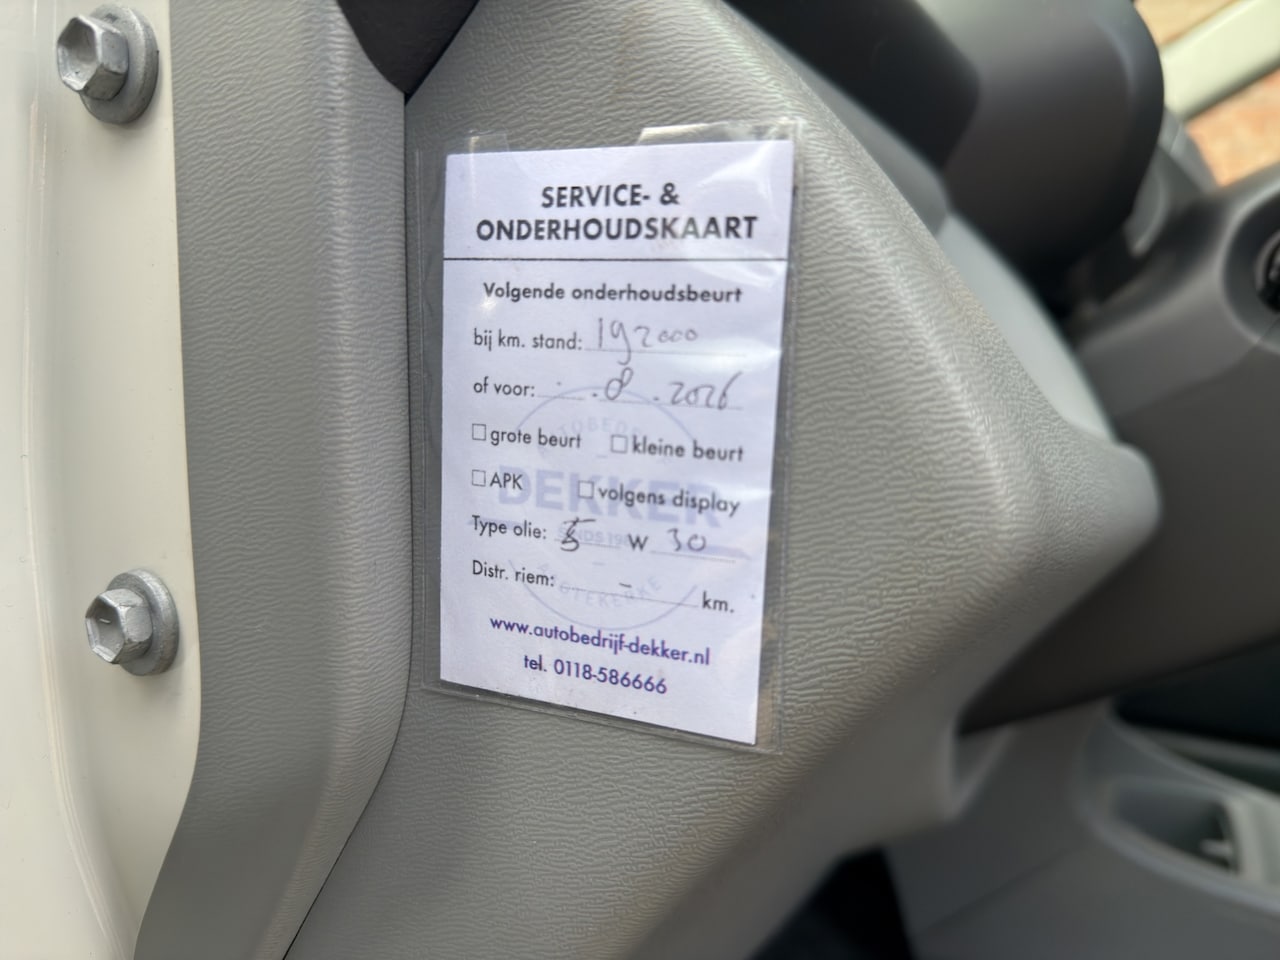 SERVICE- &
ONDERHOUDSKAART
Volgende onderhoudsbeurt
bij km. stand: 192000
of voor: . 8 . 2026
☐ grote beurt ☐ kleine beurt
☐ APK ☐ volgens display
Type olie: 5 W 30
Distr. riem: - km.
DEKKER
SINDS
www.autobedrijf-dekker.nl
tel. 0118-586666